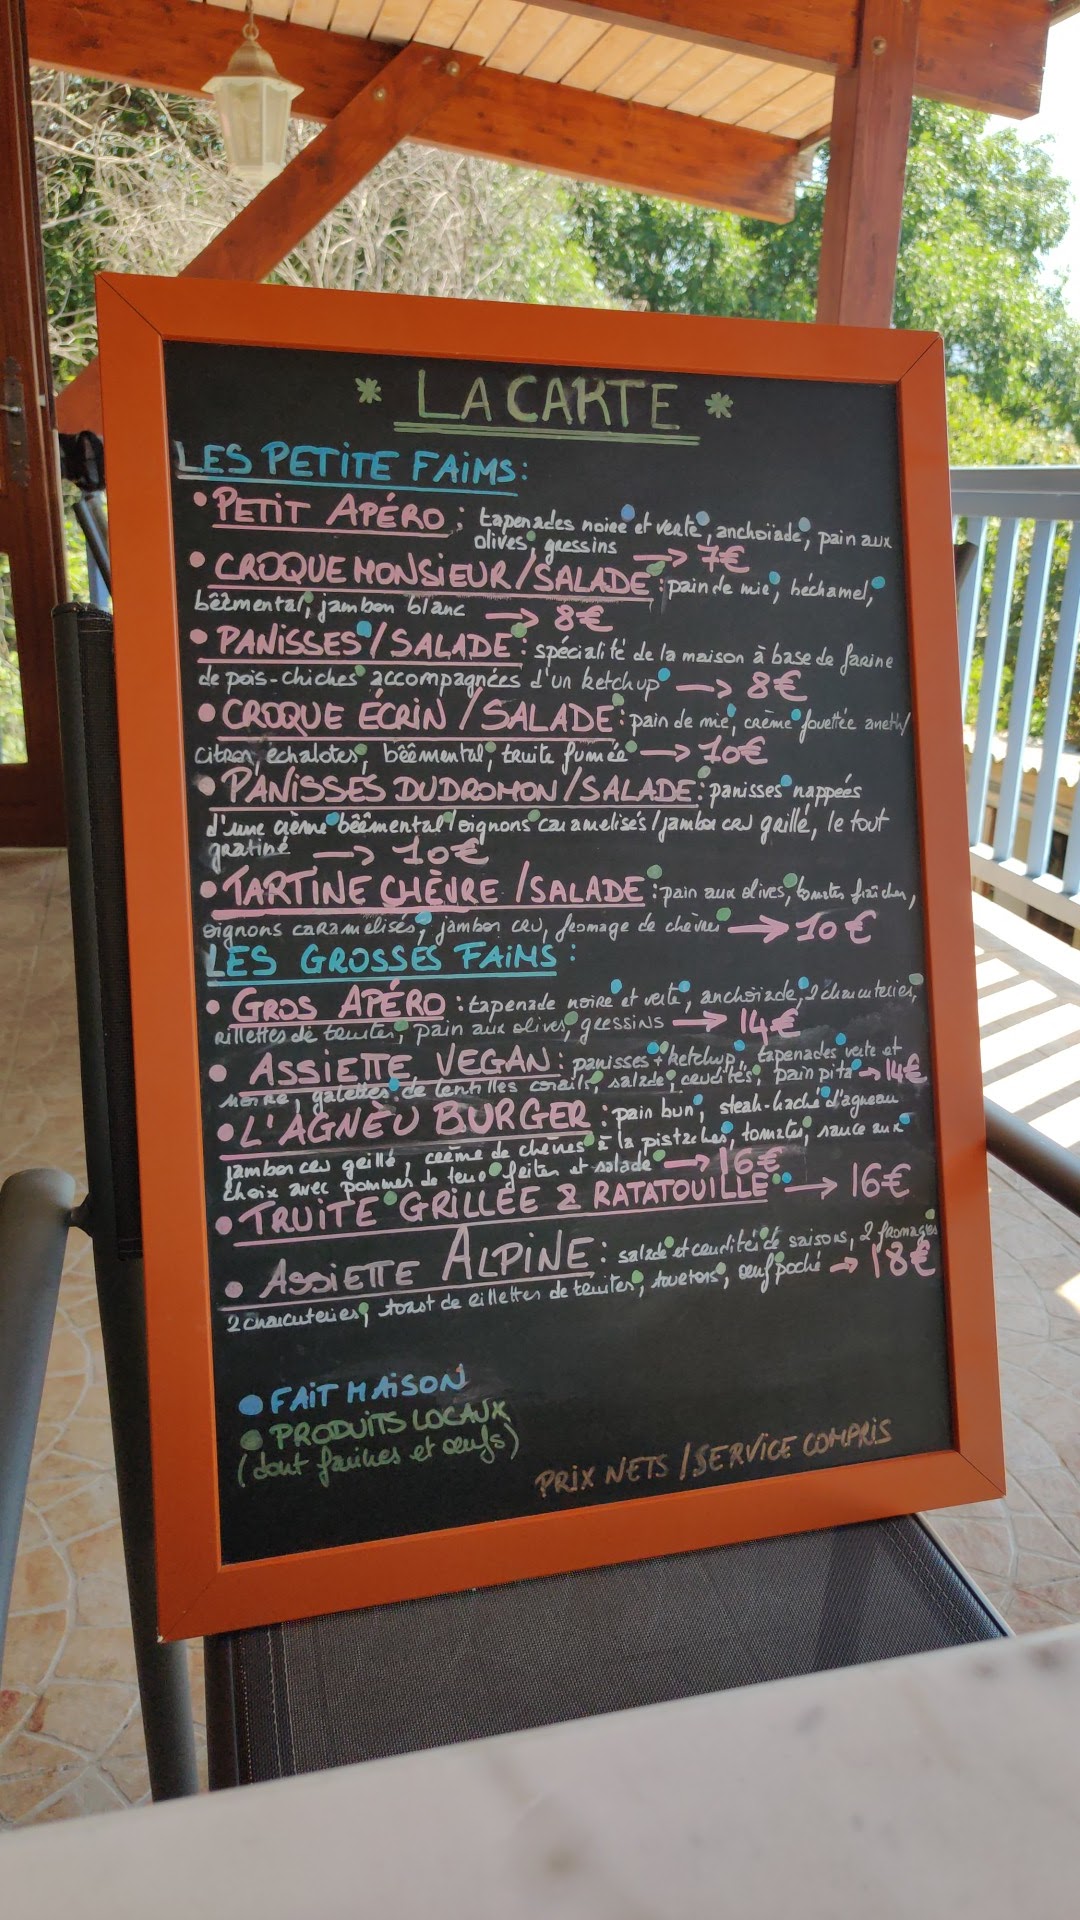 * LA CARTE *
LES PETITE FAIMS:
• PETIT APÉRO : tapenades noire et verte, anchoïade, pain aux
olives, gressins → 7€
• CROQUE MONSIEUR / SALADE : pain de mie, béchamel,
bêêmental, jambon blanc → 8€
• PANISSES / SALADE : spécialité de la maison à base de farine
de pois-chiches accompagnées d'un ketchup → 8€
• CROQUE ÉCRIN / SALADE : pain de mie, crème fouettée aneth/
citron, échalotes, bêêmental, truite fumée → 10€
• PANISSES DU DROMON / SALADE : panisses nappées
d'une crème bêêmental / oignons caramelisés / jambon cru grillé, le tout
gratiné → 10€
• TARTINE CHÈVRE / SALADE : pain aux olives, tomates fraîches,
oignons caramélisés, jambon cru, fromage de chèvre → 10€
LES GROSSES FAIMS :
• GROS APÉRO : tapenade noire et verte, anchoïade, 2 charcuteries,
rillettes de truites, pain aux olives, gressins → 14€
• ASSIETTE VEGAN : panisses + ketchup, tapenades verte et
noire, galettes de lentilles corails, salade, crudités, pain pita → 14€
• L'AGNÈU BURGER : pain bun, steak-haché d'agneau
jambon cru grillé, crème de chèvres à la pistaches, tomates, sauce aux
choix avec pommes de terre frites et salade → 16€
• TRUITE GRILLÉE & RATATOUILLE → 16€
• ASSIETTE ALPINE : salade et crudité de saisons, 2 fromages
2 charcuteries, toast de rillettes de truites, tourtons, œuf poché → 18€
• FAIT MAISON
• PRODUITS LOCAUX
(dont farines et œufs)
PRIX NETS / SERVICE COMPRIS